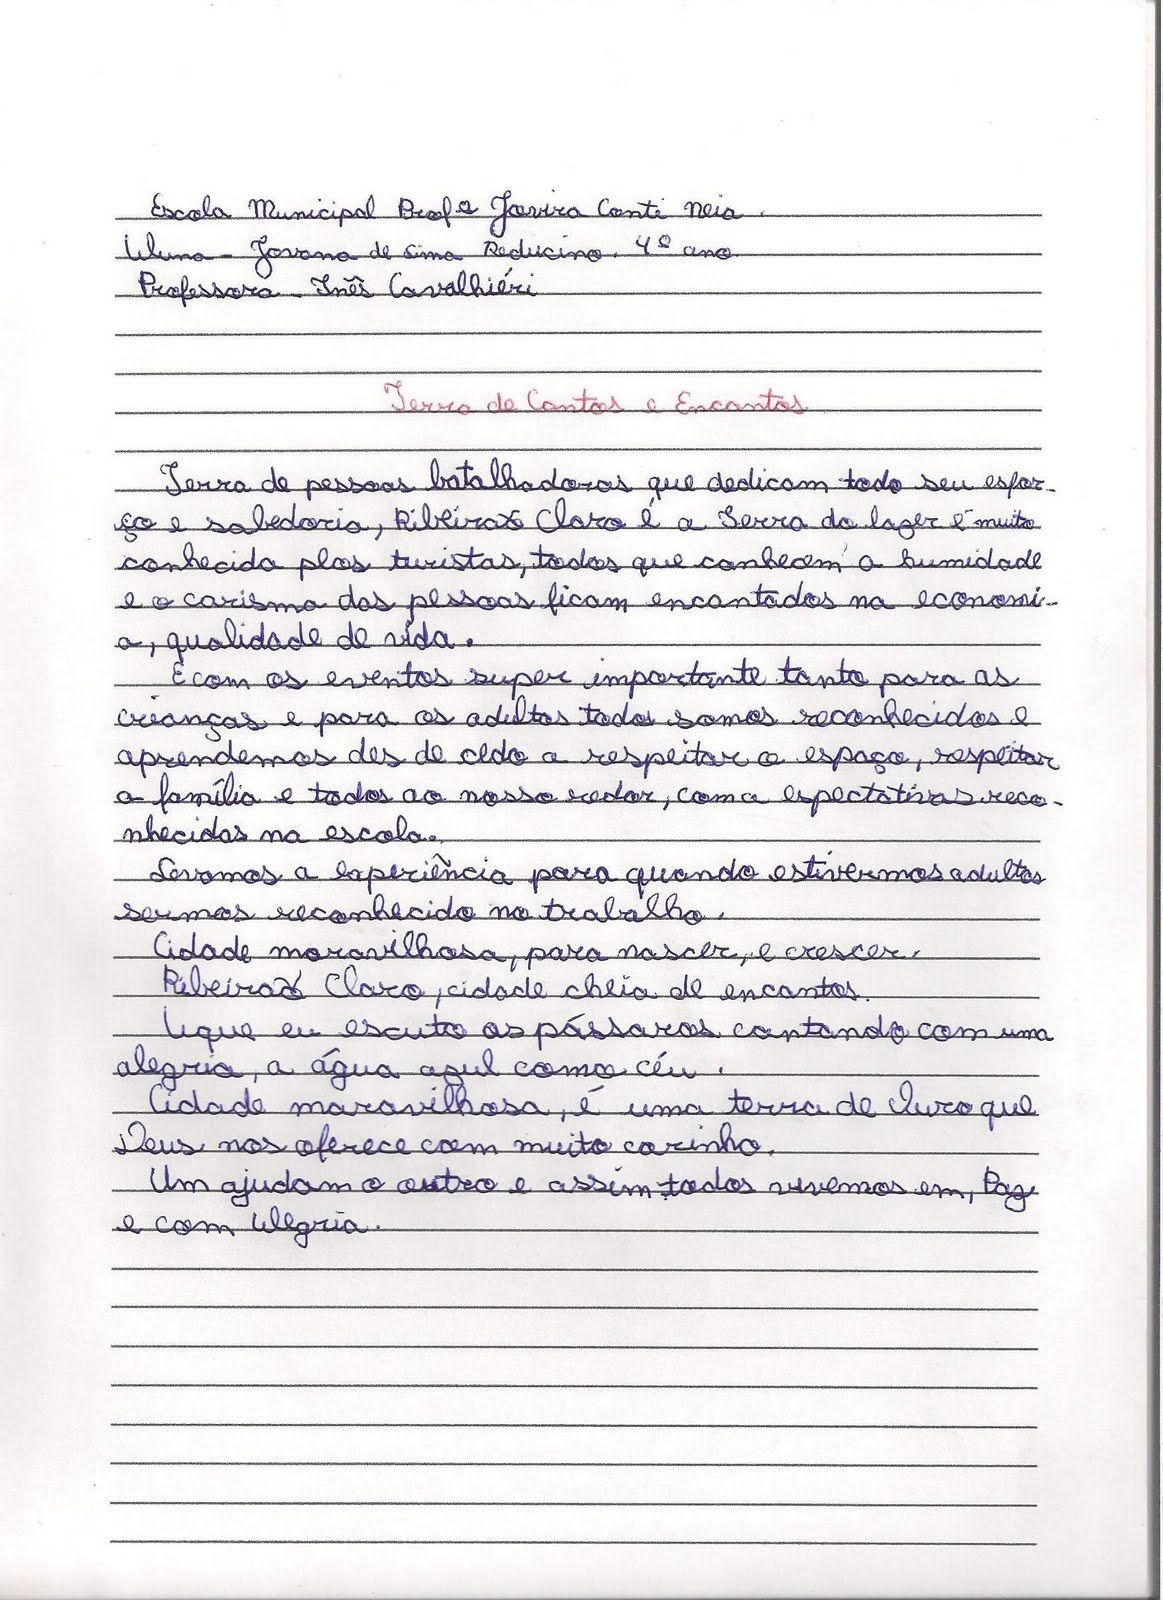 Escola Municipal Profª Jovira Conti Neia.
Aluna - Jovana de Lima Reducino. 4º ano
Professora - Inês Cavalhiéri
Terra de Cantos e Encantos
Terra de pessoas batalhadoras que dedicam todo seu esfor-
ço e sabedoria, Ribeirão Claro é a Terra do lazer é muito
conhecida plos turistas, todos que conhecem a humidade
e o carisma das pessoas ficam encantados na economi-
a, qualidade de vida.
E com os eventos super importante tanto para as
crianças e para os adultos todos somos reconhecidos e
aprendemos des de cedo a respeitar o espaço, respeitar
a família e todos ao nosso redor, com a espectativas reco-
nhecidas na escola.
Levamos a experiência para quando estivermos adultos
sermos reconhecido no trabalho.
Cidade maravilhosa, para nascer, e crescer.
Ribeirão Claro, cidade cheia de encantos.
Aque eu escuto os pássaros cantando com uma
alegria, a água azul como céu.
Cidade maravilhosa, é uma terra de Ouro que
Deus nos oferece com muito carinho.
Um ajudam o outro e assim todos vivemos em, Paz
e com Alegria.